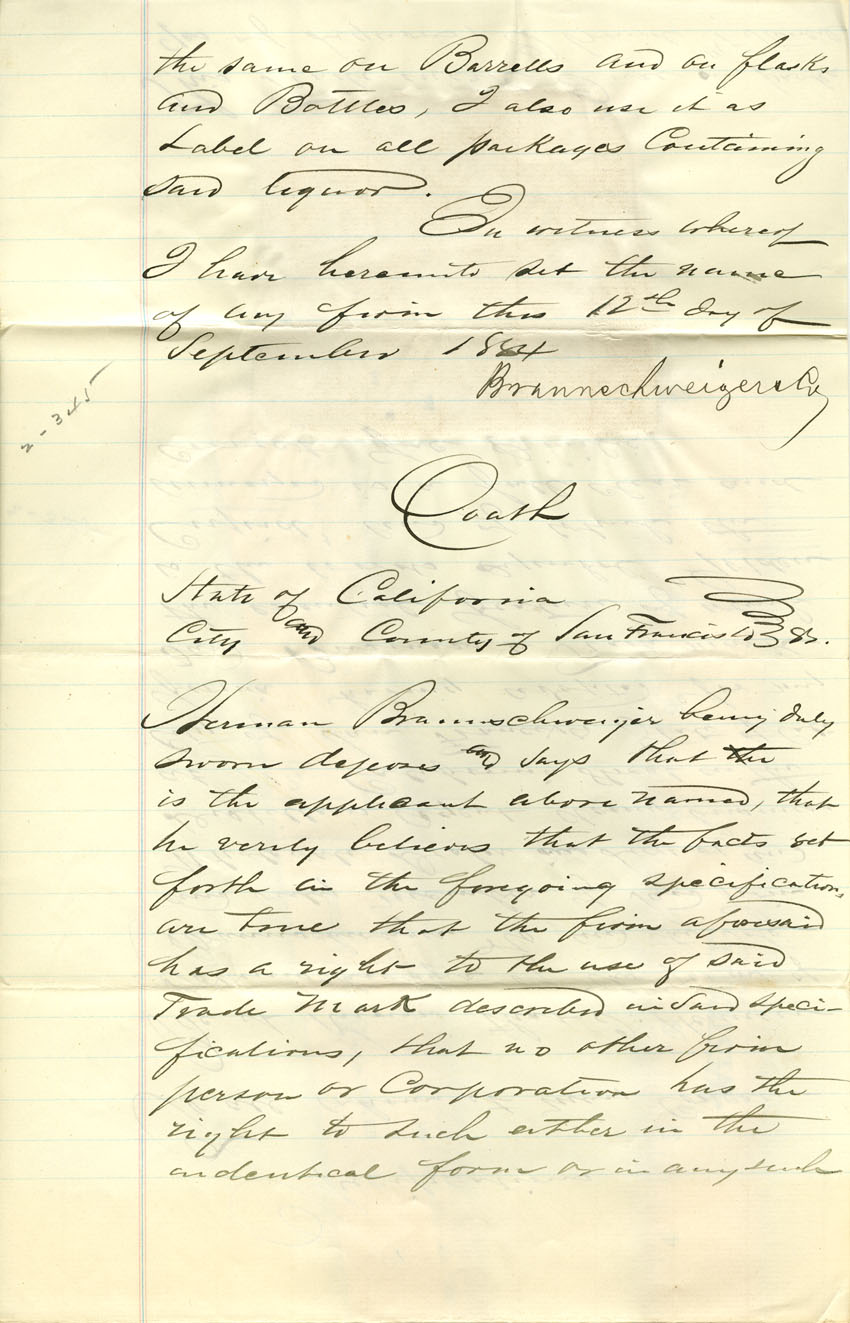 the same on Barrells and on flasks
and Bottles, I also use it as
Label on all packages Containing
said liquor.
In witness whereof
I have hereunto set the name
of my firm this 12th day of
September 1884
Braunschweiger & Co
2-345
Ooath
State of California
City and County of San Francisco ss.
Herman Braunschweiger being duly
sworn deposes and says that he
is the applicant above named, that
he verily believes that the facts set
forth in the foregoing specifications
are true that the firm aforesaid
has a right to the use of said
Trade Mark described in said speci-
fications, that no other firm
person or Corporation has the
right to such either in the
indentical form or in any such